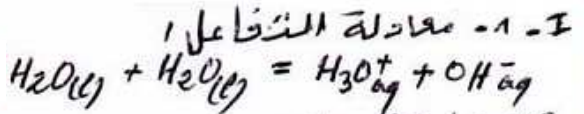 I-1- معادلة التفاعل:
H₂O(l) + H₂O(l) = H₃O⁺aq + OH⁻aq